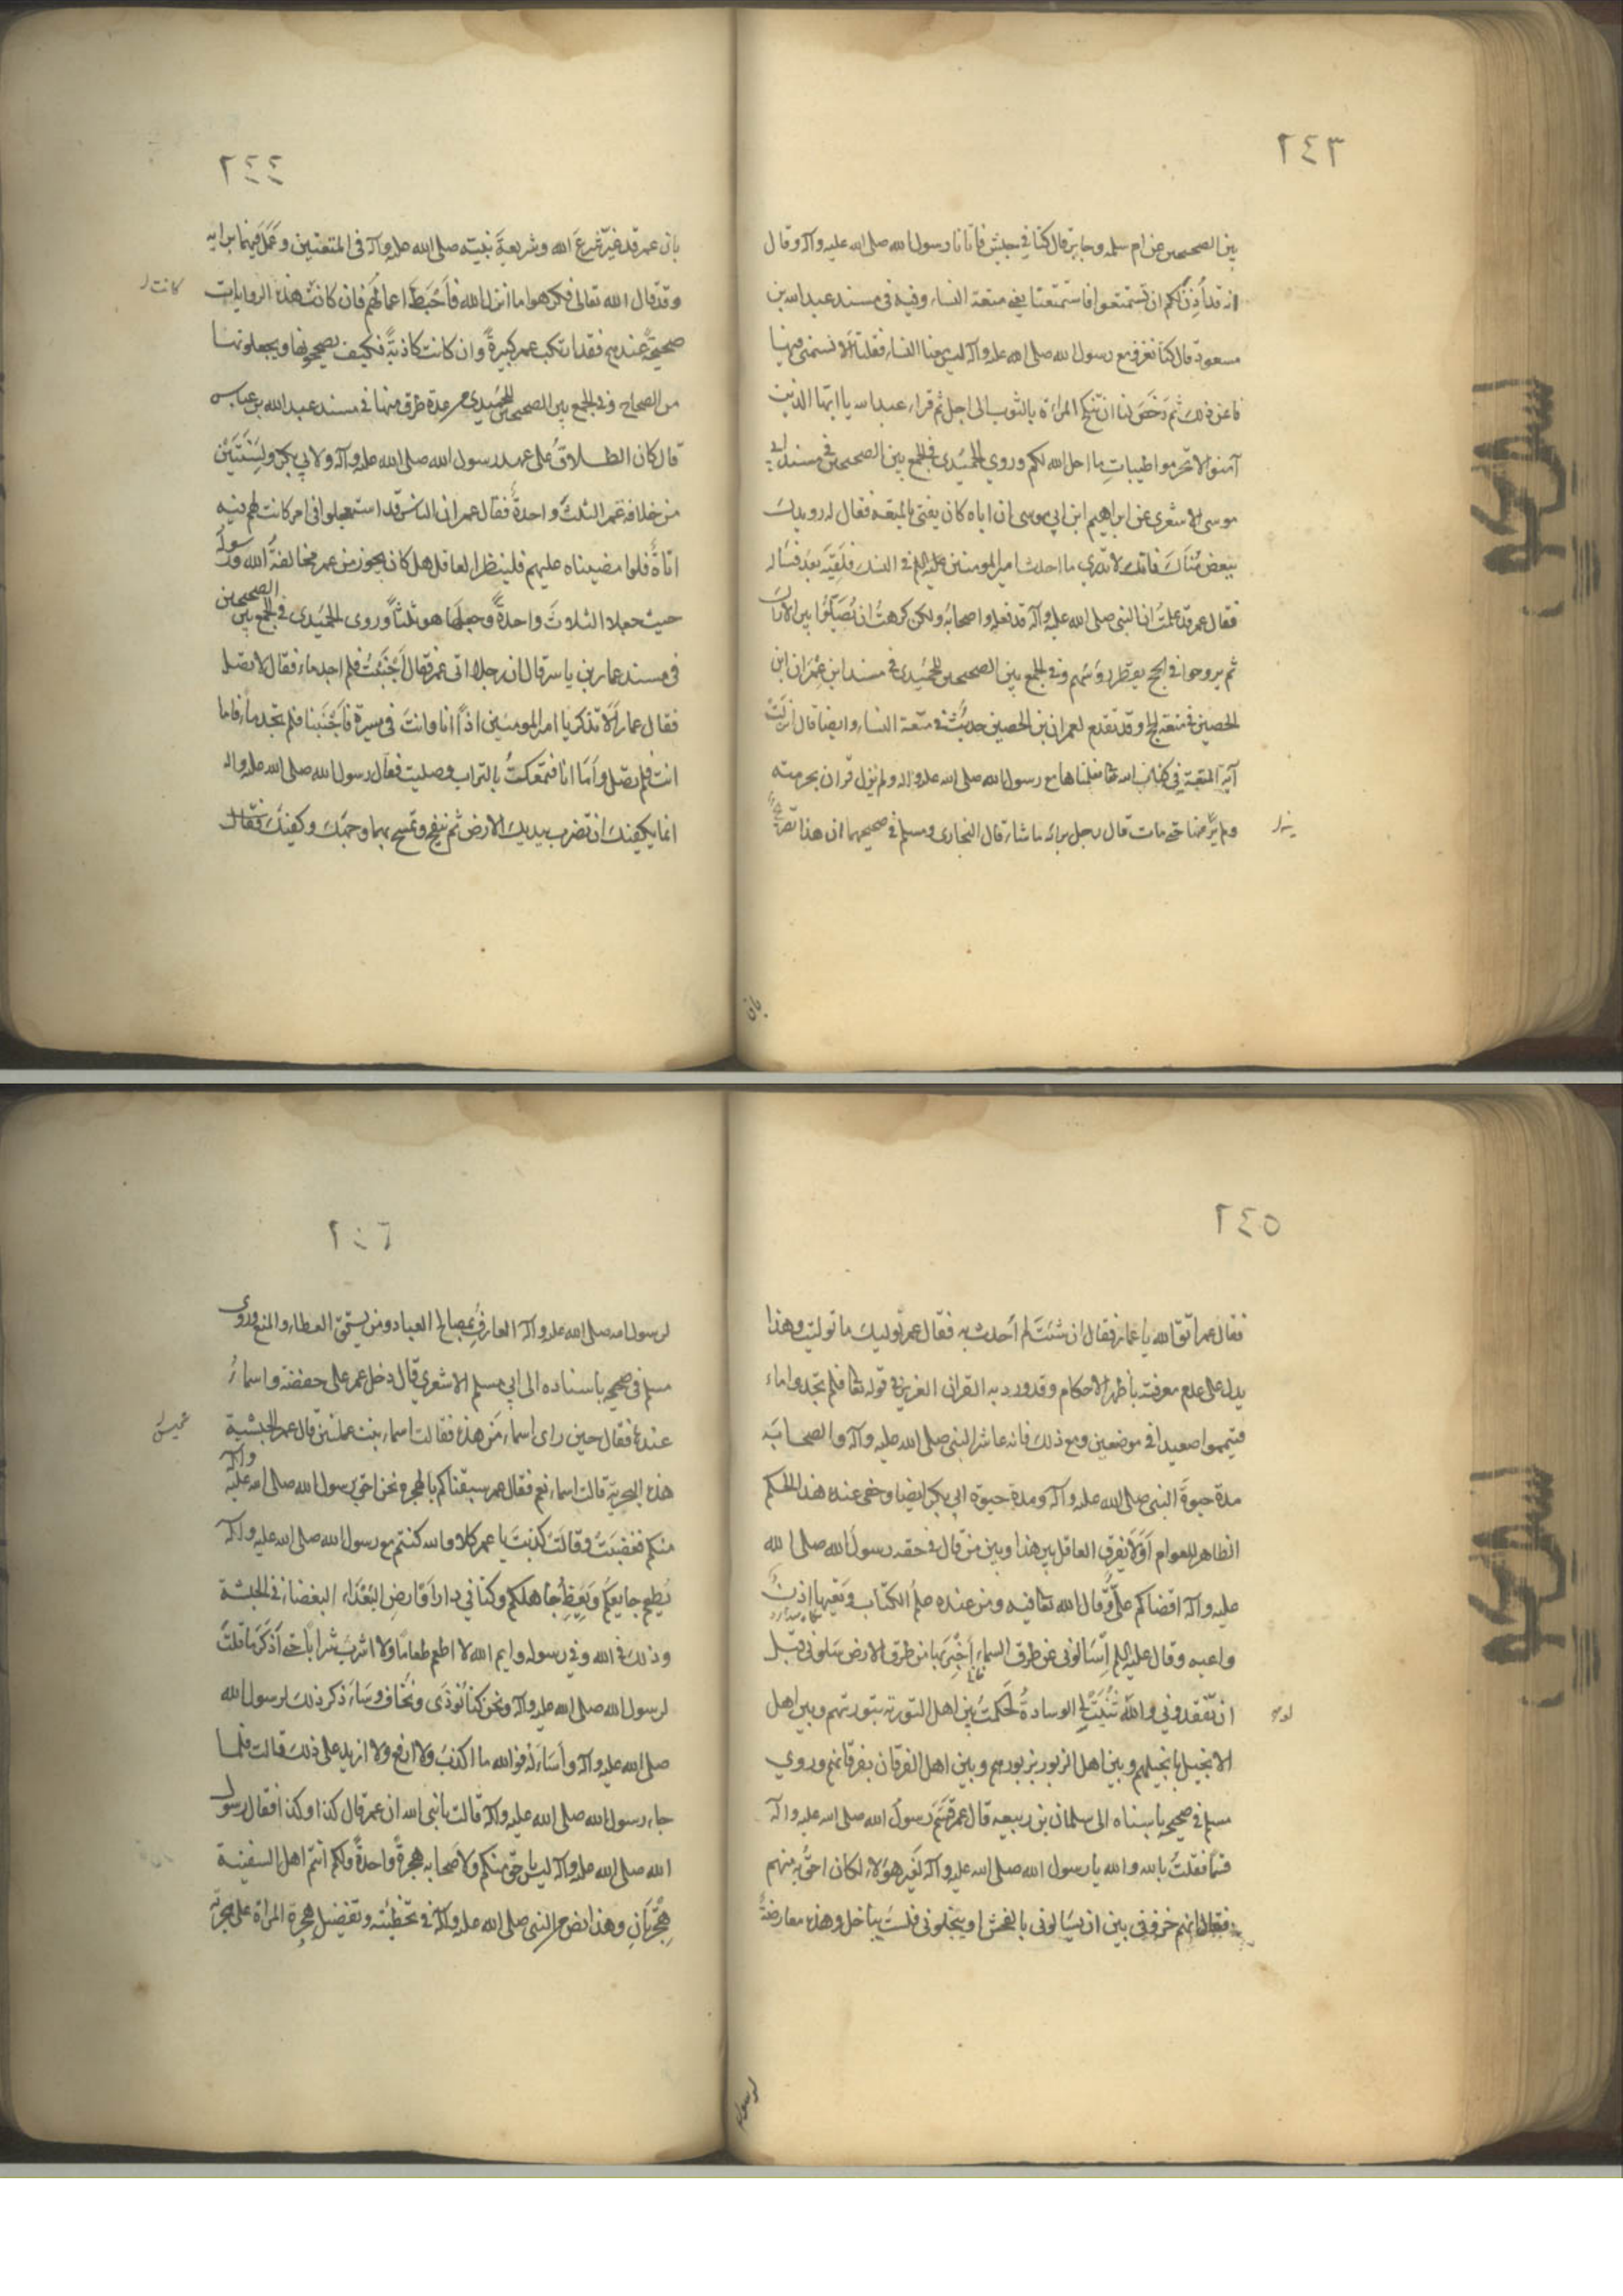 ٢٤٣
بين الصحيحين عن ام سلمه وجابر قال كنا في جيش فأتانا رسول الله صلى الله عليه وآله وقال
انه قد أُذِنَ لكم ان تستمتعوا فاستمتعنا يعني متعة النساء وفيه في مسند عبد الله بن
مسعود قال كنا نغزو مع رسول الله صلى الله عليه وآله ليس معنا النساء فقلنا ألا نستخصي فنهانا
عن ذلك ثم رَخَّصَ لنا ان ننكح المراة بالثوب الى اجل ثم قراء عبد الله يا ايها الذين
آمنوا لا تحرموا طيبات ما احل الله لكم وروي الحميدي في الجمع بين الصحيحين في مسند ابي
موسى الاشعري عن ابراهيم ابن ابي موسى ان اباه كان يفتى بالمتعه فقال له رويدك
ببعض فُتياك فانك لا تدري ما احدث امير المومنين في النسك فلَقِيَه بَعْدُ فسَاله
فقال عمر قد علمتُ ان النبى صلى الله عليه وآله قد فعله واصحابه ولكن كرهتُ ان يُصَلُّوا بين الاراك
ثم يروحوا في الحج يقطر رؤسهم وفي الجمع بين الصحيحين للحميدي في مسند ابن عمران ابن
الحصين في متعة الحج وقد تقدم لعمران بن الحصين حديث في متعة النساء وايضا قال انزلت
آية المتعة في كتاب الله تعا فعلناها مع رسول الله صلى الله عليه واله ولم ينزل قران بحرمته
ولم ينه عنها حتى مات قال رجل برايه ما شاء قال البخاري ومسلم في صحيحهما ان هذا تصريح
بان
٢٤٤
بان عمر قد غيّر شرع الله وشريعة نبيّه صلى الله عليه وآله في المتعتين وعَمِلَ فيهما برايه
وقد قال الله تعالى فكرهوا ما انزل الله فأحْبَطَ اعمالَهُم فان كانت هذه الروايات
كانت
صحيحةً عندهم فقد ارتكب عمر كبيرةً وان كانت كاذبةً فكيف يصححونها ويجعلونها
من الصحاح وفي الجمع بين الصحيحين للحُمَيدي من عدة طرق منها في مسند عبد الله بن عباس
قال كان الطلاقُ على عهد رسول الله صلى الله عليه وآله ولابي بكر ولِسَنَتَيْنِ
من خلافة عُمر الثلثُ واحدةً فقال عمر ان الناس قد استعجلوا في امر كانت لهم فيه
اناةٌ فلوا مضيناه عليهم فلينظر العاقل هل كان يجوز من عمر مخالفةُ الله ورسوله
حيث جعلا الثلاثَ واحدةً وجعلها هو ثلثاً وروى الحُمَيدي في الجمع بين الصحيحين
في مسند عمار بن ياسر قال ان رجلا اتى عمر فقال اَجْنَبْتُ فلم اجد ماء فقال لا تصل
فقال عمار اَلا تذكر يا امير المومنين اذ انا وانتَ في سرية فأَجْنَبنا فلم نجد ماءً فاما
انت فلم تصل وأما انا فتمعكتُ بالتراب وصليت فقال رسول الله صلى الله عليه واله
انما يكفيك ان تضرب بيديك الارض ثم تنفخ وتمسح بهما وجهك وكفيك فقال
٢٤٥
فقال عمر اتّق الله يا عمار فقال ان شئتَ لم اُحدث به فقال عمر نوليك ما توليت وهذا
يدل على عدم معرفته بأظهر الاحكام وقد ورد به القران العزيز في قوله تعا فلم تجدوا ماء
فتيمموا صعيدا في موضعين ومع ذلك فانه عاشر النبى صلى الله عليه وآله والصحابَه
مدة حيوةِ النبي صلى الله عليه وآله ومدة حيوة ابي بكر ايضا وخفي عنده هذا الحكم
الظاهر للعوام أوَلا يفرق العاقل بين هذا وبين من قال في حقه رسول الله صلى الله
عليه وآله اقضاكم عليٌّ وقال الله تعا فيه ومن عنده علمُ الكتاب وتَعِيَها اذنٌ
واعيه وقال عليه السلم اِسْألوني عن طرق السماء أُخْبِركم بها من طرق الارض سَلوني قبل
ان تفقدوني والله ثُنِيَتْ لي الوسادة لحَكَمتُ بين اهل التورية بتورتهم وبين اهل
لو
الانجيل بانجيلهم وبين اهل الزبور بزبورهم وبين اهل الفرقان بفرقانهم وروي
مسلم في صحيحه باسناه الى سلمان بن ربيعه قال عمر قَسَّمَ رسول الله صلى الله عليه وآله
قسما فقلتُ بالله والله يا رسول الله صلى الله عليه وآله لغير هؤلاء لكان احقُّ به منهم
فقال انهم خيروني بين ان يَسَالوني بالفحش او يبخلوني فلستُ بباخل وهذه معارضةٌ
لرسول
٢٤٦
لرسول الله صلى الله عليه وآله العارف بمصالح العباد ومن يستحق العطاء والمنع وروى
مسلم في صحيحه باسناده الى ابي مسلم الاشعري قال دخل عمر على حفصة واسماءُ
عندها فقال حين راى اسماء مَن هذه فقالت اسماء بنت عميس قال عمر الحبشية
عميس
هذه البحرية قالت اسماء نعم فقال عمر سبقناكم بالهجرة نحن احق برسول الله صلى الله عليه وآله
منكم فغضِبَت وقالَت كذبتَ يا عمر كلا والله كنتم مع رسول الله صلى الله عليه وآله
يُطعِم جايعكم ويَعِظُ جاهلكم وكنّا في دار او ارض البُعَداء البغضاء في الحبشة
وذلك في الله وفي رسوله وايم الله لا اطعم طعامًا ولا اشربُ شرابًا حتى أذكُرَ ما قلتَ
لرسول الله صلى الله عليه وآله ونحن كنا نُؤذَى ونُخاف وسَاَذكر ذلك لرسول الله
صلى الله عليه وآله وأسَالُه فوالله ما اكذبُ ولا ازيغ ولا ازيد على ذلك قالت فلما
جاء رسول الله صلى الله عليه وآله قالت يا نبى الله ان عمر قال كذا وكذا فقال رسول
الله صلى الله عليه وآله ليس باحق بي منكم ولاصحابه هجرةٌ واحدةٌ ولكم انتم اهل السفينة
هِجْرَتانِ وهذا نص من النبى صلى الله عليه وآله في تخطئته وتفضيل هجرة المراة على هجرته